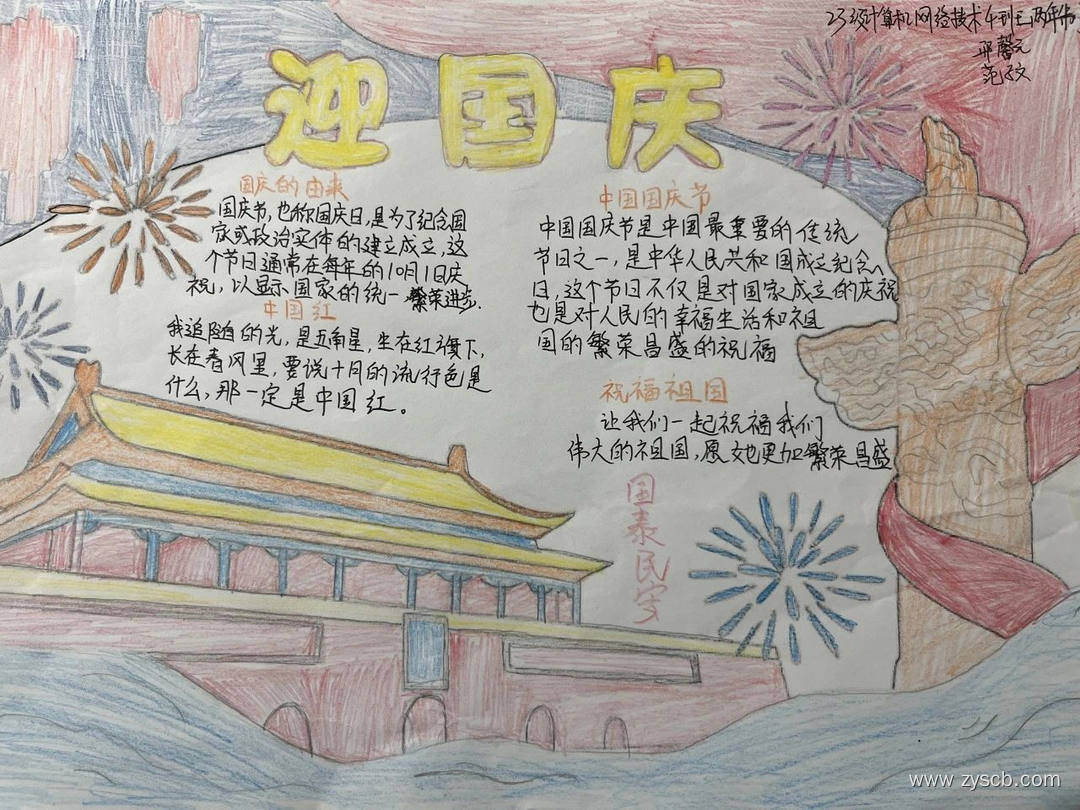 迎国庆
23级计算机网络技术
国庆的由来
国庆节,也称国庆日,是为了纪念国
家或政治实体的建立成立,这
个节日通常在每年的10月1日庆
祝,以显示国家的统一繁荣进步.
中国红
我追随的光,是五角星,生在红旗下,
长在春风里,要说十月的流行色是
什么,那一定是中国红。
中国国庆节
中国国庆节是中国最重要的传统
节日之一,是中华人民共和国成立纪念、
日,这个节日不仅是对国家成立的庆祝
也是对人民的幸福生活和祖
国的繁荣昌盛的祝福
祝福祖国
让我们一起祝福我们
伟大的祖国,愿她更加繁荣昌盛
国泰民安
www.zyscb.com